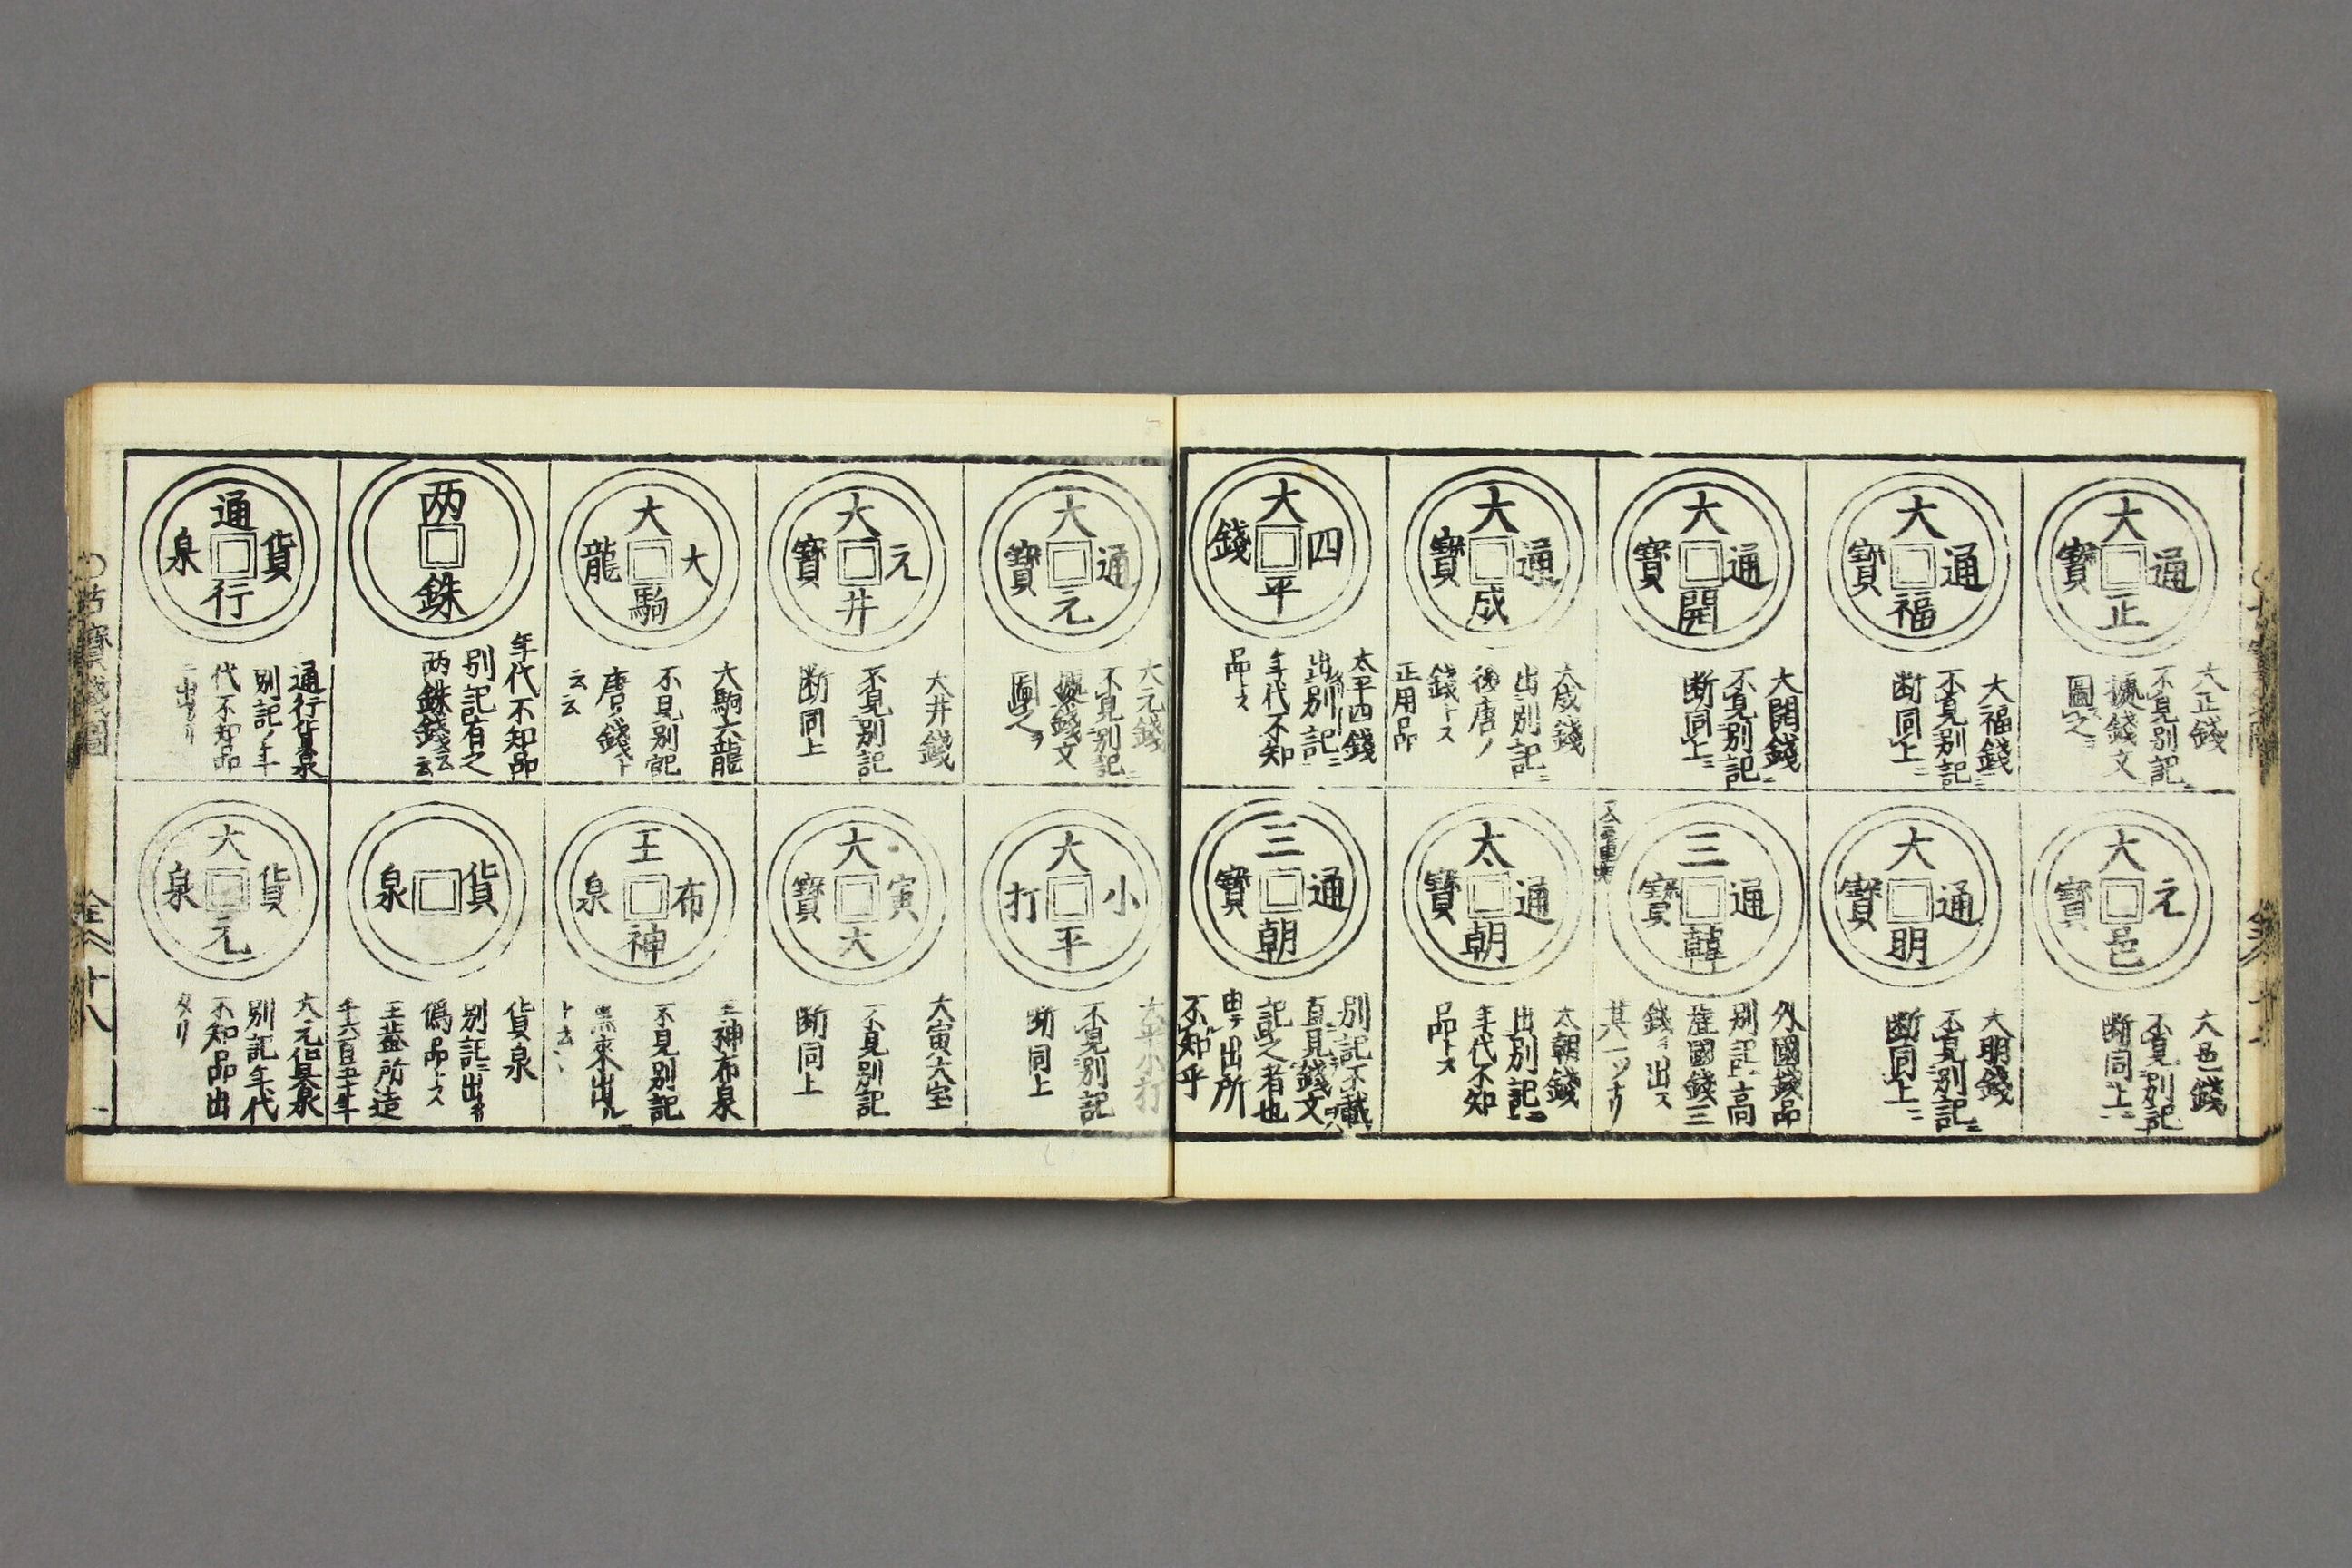 大正通寶
大正錢
不見別記ニ
據錢文
圖之
大福通寶
大福錢
不見別記ニ
断同上ニ
大開通寶
大開錢
不見別記ニ
断同上ニ
大成通寶
大成錢
出別記ニ
後唐ノ
錢トス
正用品
大平四錢
太平四錢
出別記ニ
年代不知
品トス
大邑元寶
大邑錢
不見別記
断同上ニ
大明通寶
大明錢
不見別記ニ
断同上ニ
三韓通寶
外國錢品
別記高
錢ヲ出ス
其一ツナリ
太朝通寶
太朝錢
出別記ニ
年代不知
品トス
三朝通寶
別記不載
直見錢文
記之者也
出所
不知乎
大元通寶
大元錢
不見別記ニ
據錢文
圖之ヲ
大井元寶
大井錢
不見別記
断同上
大駒大龍
大駒大龍
不見別記
唐ノ錢ト
云云
两銖
年代不知品
別記有之
两銖錢云云
通行貨泉
通行貨泉
別記ノ年
代不知品
大平小打
大平小打
不見別記
断同上
大大寅寶
大寅大宝
不見別記
断同上
王神布泉
王神布泉
不見別記
貨泉
貨泉
別記ニ出ス
偽品トス
王莽所造
千六百五十年
大元貨泉
大元貨泉
別記年代
不知品出
タリ
寶錢圖
全
廿八